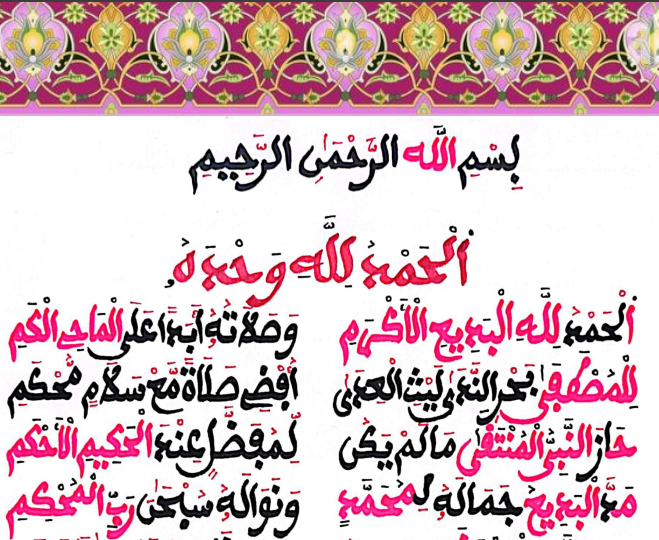 بِسْمِ اللَّهِ الرَّحْمَٰنِ الرَّحِيمِ
الْحَمْدُ لِلَّهِ وَحْدَهُ
الْحَمْدُ لِلَّهِ الْبَدِيعِ الْأَكْرَمِ وَصَلَاتُهُ أَبَدًا عَلَى الْمَاحِي الْكَمِ
لِلْمُصْطَفَى بَحْرِ النَّدَى لَيْثِ الْعِدَى أَفْضَى صَلَاةً مَّعْ سَلَامٍ مُّحْكَمِ
حَازَ النَّبِيُّ الْمُنْتَقَى مَا لَمْ يَكُن لِمُفَضَّلٍ عِنْدَ الْحَكِيمِ الْأَحْكَمِ
مَدَّ الْبَدِيعُ جَمَالَهُ لِمُحَمَّدٍ وَنَوَالَهُ سُبْحَٰنَ رَبِّ الْمُحْكَمِ